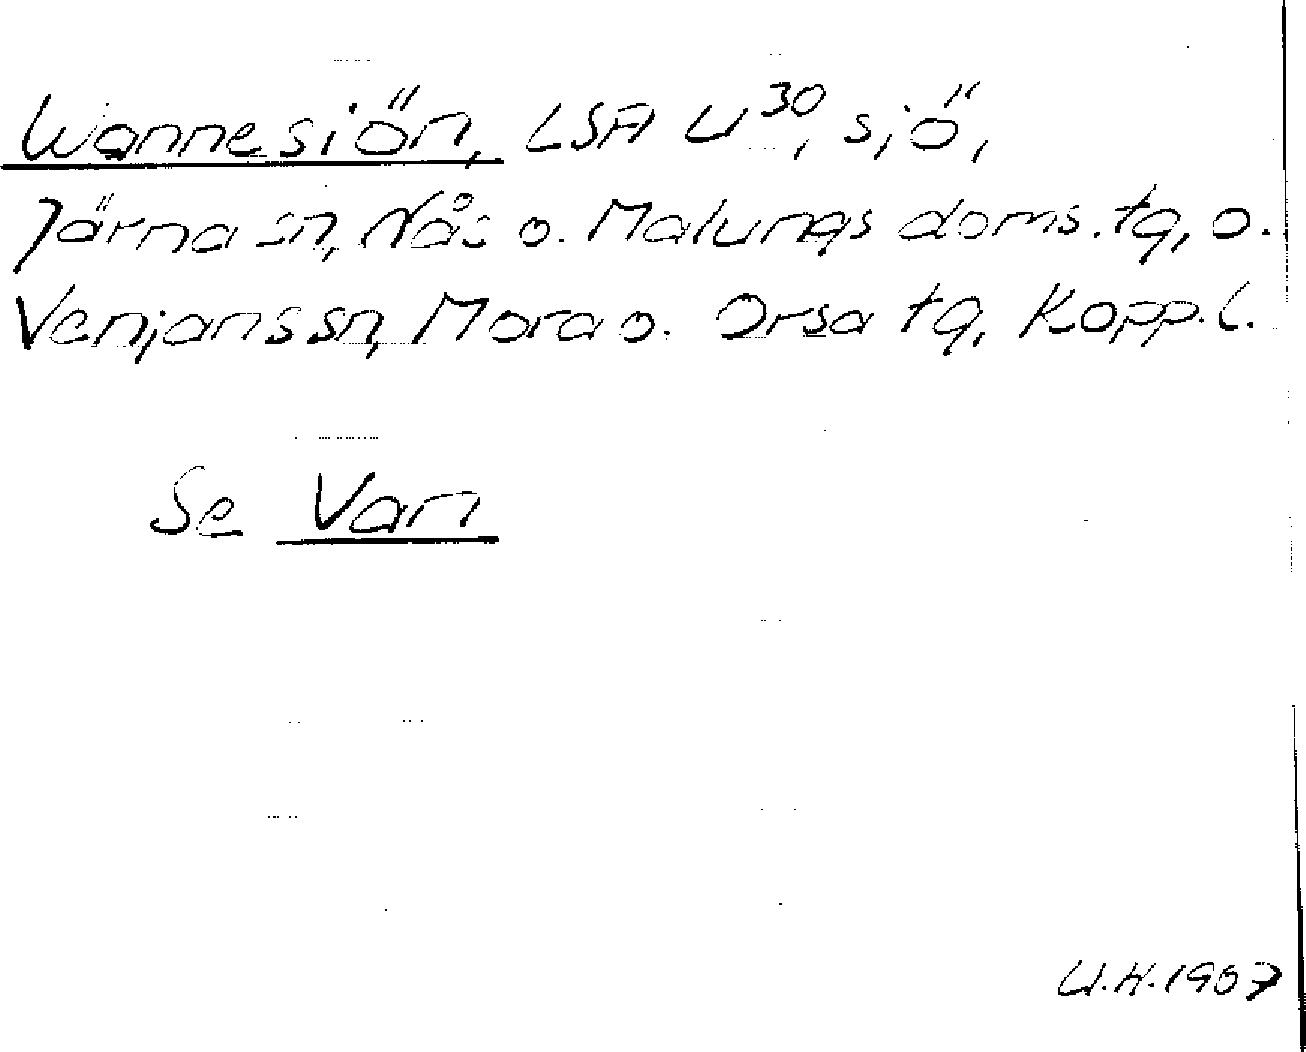 Wannesiön, LSA U³⁰, sjö,
Järna sn, Nås o. Malungs doms.tg, o.
Venjans sn, Mora o. Orsa tg, Kopp.l.
Se Van
U.H. 1907